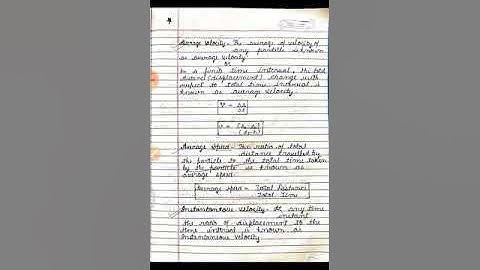 Average Velocity - The average of velocity of
any particle is known
as average velocity
or
In a finite time interval, the total
distance (displacement) change with
respect to total time interval is
known as average velocity.
V = Δs/Δt
Average Speed - The ratio of total
distance travelled by
the particle to the total time taken
by the particle is known as
average speed
Average speed = Total Distance
Total Time
Instantaneous Velocity - At any time
instant
the ratio of displacement to the
time interval is known as
instantaneous velocity